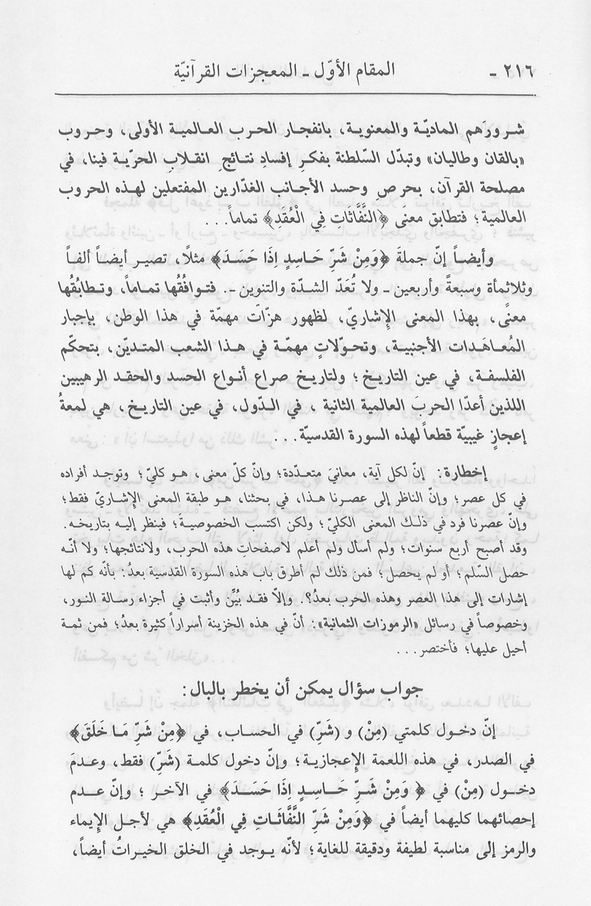 ٢١٦ - المقام الأوّل - المعجزات القرآنيّة
شرورَهم الماديّة والمعنوية، بانفجار الحرب العالمية الأولى، وحروب
«بالقان وطاليان» وتبدّل السّلطنة بفكرِ إفسادِ نتائج انقلابِ الحرّية فينا، في
مصلحة القرآن، بحرصِ وحسدِ الأجانب الغدّارين المفتعلين لهذه الحروب
العالمية؛ فتطابق معنى ﴿النَّفَّاثَاتِ فِي الْعُقَدِ﴾ تماماً...
وأيضاً إنّ جملةَ ﴿وَمِنْ شَرِّ حَاسِدٍ إِذَا حَسَدَ﴾ مثلًا، تصير أيضاً ألفاً
وثلاثمأة وسبعةً وأربعين - ولا تُعَدّ الشدّة والتنوين -. فتوافُقُها تماماً، وتطابُقُها
معنًى، بهذا المعنى الإشاريّ، لظهور هزّات مهمّة في هذا الوطن، بإجبار
المُعاهَدات الأجنبية، وتحوّلاتٍ مهمّة في هذا الشعب المتديّن، بتحكّم
الفلسفة، في عين التاريخ؛ ولتاريخ صراع أنواع الحسد والحقد الرهيبين
اللذين أعدّا الحربَ العالمية الثانية، في الدّول، في عين التاريخ، هي لمعةُ
إعجازٍ غيبيّة قطعاً لهذه السورة القدسيّة...
إخطارة: إنّ لكل آية، معانيَ متعدّدة؛ وإنّ كلّ معنى، هو كليّ؛ وتوجد أفراده
في كل عصر؛ وإنّ الناظر إلى عصرنا هذا، في بحثنا، هو طبقة المعنى الإشاريّ فقط؛
وإنّ عصرنا فرد في ذلك المعنى الكليّ؛ ولكن اكتسب الخصوصية؛ فينظر إليه بتاريخه.
وقد أصبح أربع سنوات؛ ولم أسأل ولم أعلم لاصفحاتِ هذه الحرب، ولانتائجها؛ ولا أنّه
حصل السّلم؛ أو لم يحصل؛ فمن ذلك لم أطرق باب هذه السورة القدسية بعدُ: بأنّه كم لها
إشارات إلى هذا العصر وهذه الحرب بعدُ؟. وإلاّ فقد بيّن وأثبت في أجزاء رسالة النور،
وخصوصاً في رسائل «الرموزات الثمانية»: أنّ في هذه الخزينة أسراراً كثيرة بعدُ؛ فمن ثمة
أحيل عليها؛ فأختصر...
جواب سؤال يمكن أن يخطر بالبال:
إنّ دخول كلمتي (مِنْ) و (شَرِّ) في الحساب، في ﴿مِنْ شَرِّ مَا خَلَقَ﴾
في الصدر، في هذه اللمعة الإعجازية؛ وإنّ دخول كلمة (شَرِّ) فقط، وعدمَ
دخول (مِنْ) في ﴿ وَمِنْ شَرِّ حَاسِدٍ إِذَا حَسَدَ﴾ في الآخر؛ وإنّ عدم
إحصائهما كليهما أيضاً في ﴿وَمِنْ شَرِّ النَّفَّاثَاتِ فِي الْعُقَدِ﴾ هي لأجل الإيماء
والرمز إلى مناسبة لطيفة ودقيقة للغاية؛ لأنّه يوجد في الخلق الخيراتُ أيضاً،